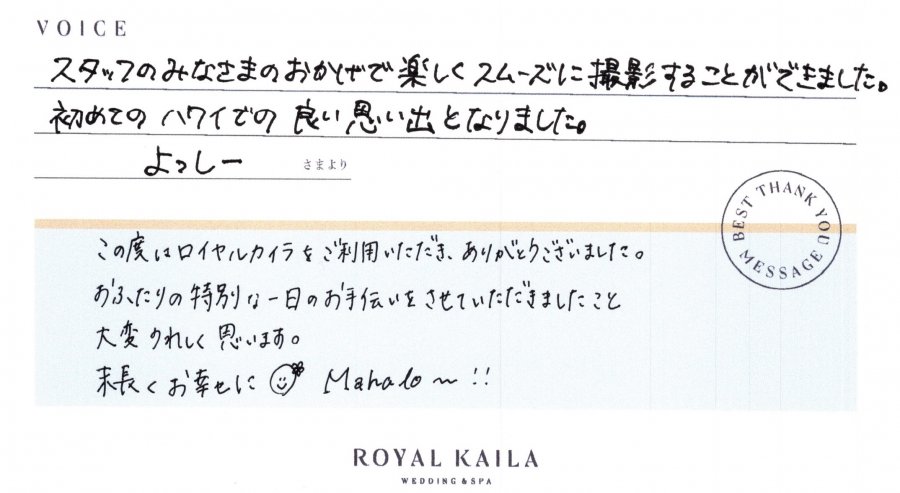 VOICE
スタッフのみなさまのおかげで楽しくスムーズに撮影することができました。
初めてのハワイでの良い思い出となりました。
よっしー さまより
BEST THANK YOU MESSAGE
この度はロイヤルカイラをご利用いただき、ありがとうございました。
おふたりの特別な一日のお手伝いをさせていただきましたこと
大変うれしく思います。
末長くお幸せに Mahalo〜!!
ROYAL KAILA
WEDDING & SPA